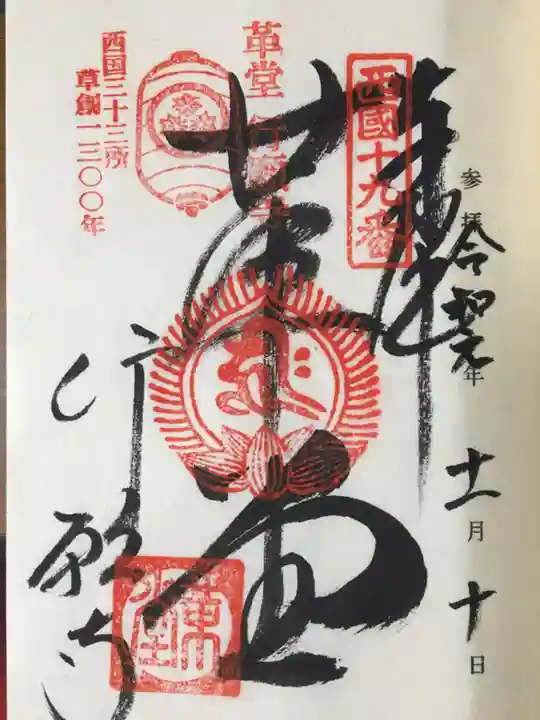 参拝
令和元年
十一月十日
奉拝
西國十九番
革堂
革堂 行願寺
西国三十三所
草創一三〇〇年
行願寺
革堂